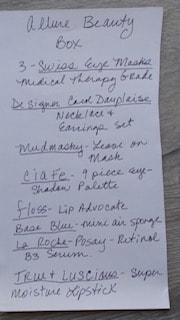 Allure Beauty
Box
3 - Swiss Eye Masks
Medical Therapy Grade
Designer Card
Necklace &
Earrings Set
Mudmasky - Leave on
Mask
Ciaté - 9 piece eye-
Shadow Palette
floss - Lip Advocate
Base Blue - mini air sponge
La Roche-Posay - Retinol
B3 Serum.
TRUE + LUSCIOUS - Super
Moisture Lipstick